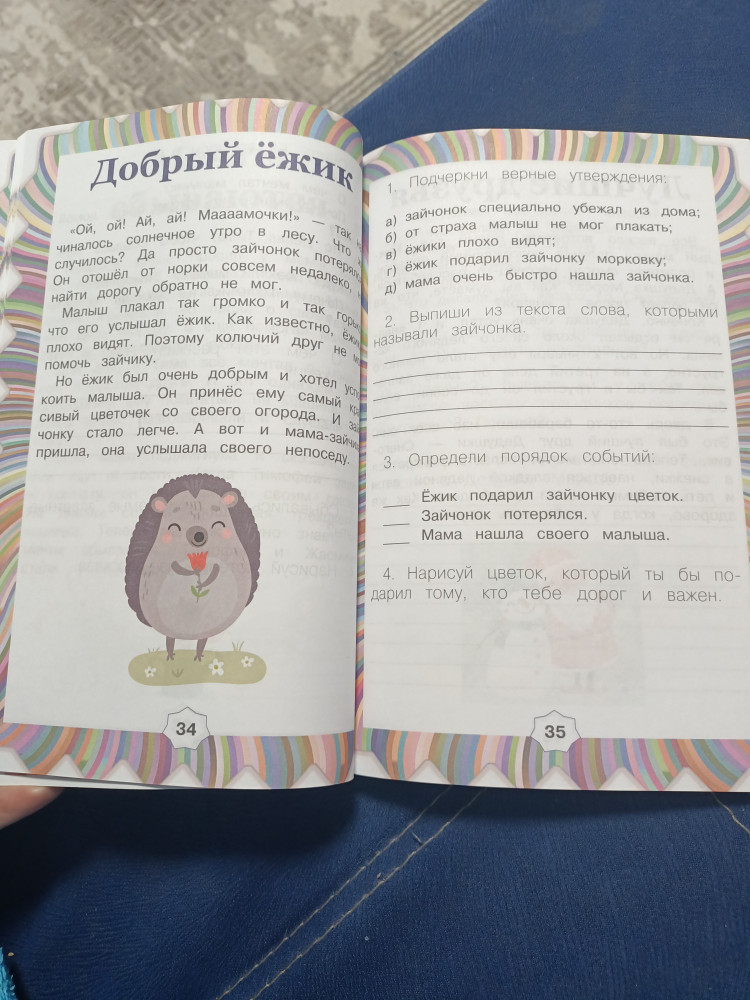 Добрый ёжик
«Ой, ой! Ай, ай! Маааамочки!» — так
чиналось солнечное утро в лесу. Что
случилось? Да просто зайчонок потерял
Он отошёл от норки совсем недалеко,
найти дорогу обратно не мог.
Малыш плакал так громко и так горь
что его услышал ёжик. Как известно, ёжи
плохо видят. Поэтому колючий друг не
помочь зайчику.
Но ёжик был очень добрым и хотел успо
коить малыша. Он принёс ему самый кра
сивый цветочек со своего огорода. И зай
чонку стало легче. А вот и мама-зайчи
пришла, она услышала своего непоседу.
34
1. Подчеркни верные утверждения:
а) зайчонок специально убежал из дома;
б) от страха малыш не мог плакать;
в) ёжики плохо видят;
г) ёжик подарил зайчонку морковку;
д) мама очень быстро нашла зайчонка.
2. Выпиши из текста слова, которыми
называли зайчонка.
3. Определи порядок событий:
Ёжик подарил зайчонку цветок.
Зайчонок потерялся.
Мама нашла своего малыша.
4. Нарисуй цветок, который ты бы по-
дарил тому, кто тебе дорог и важен.
35